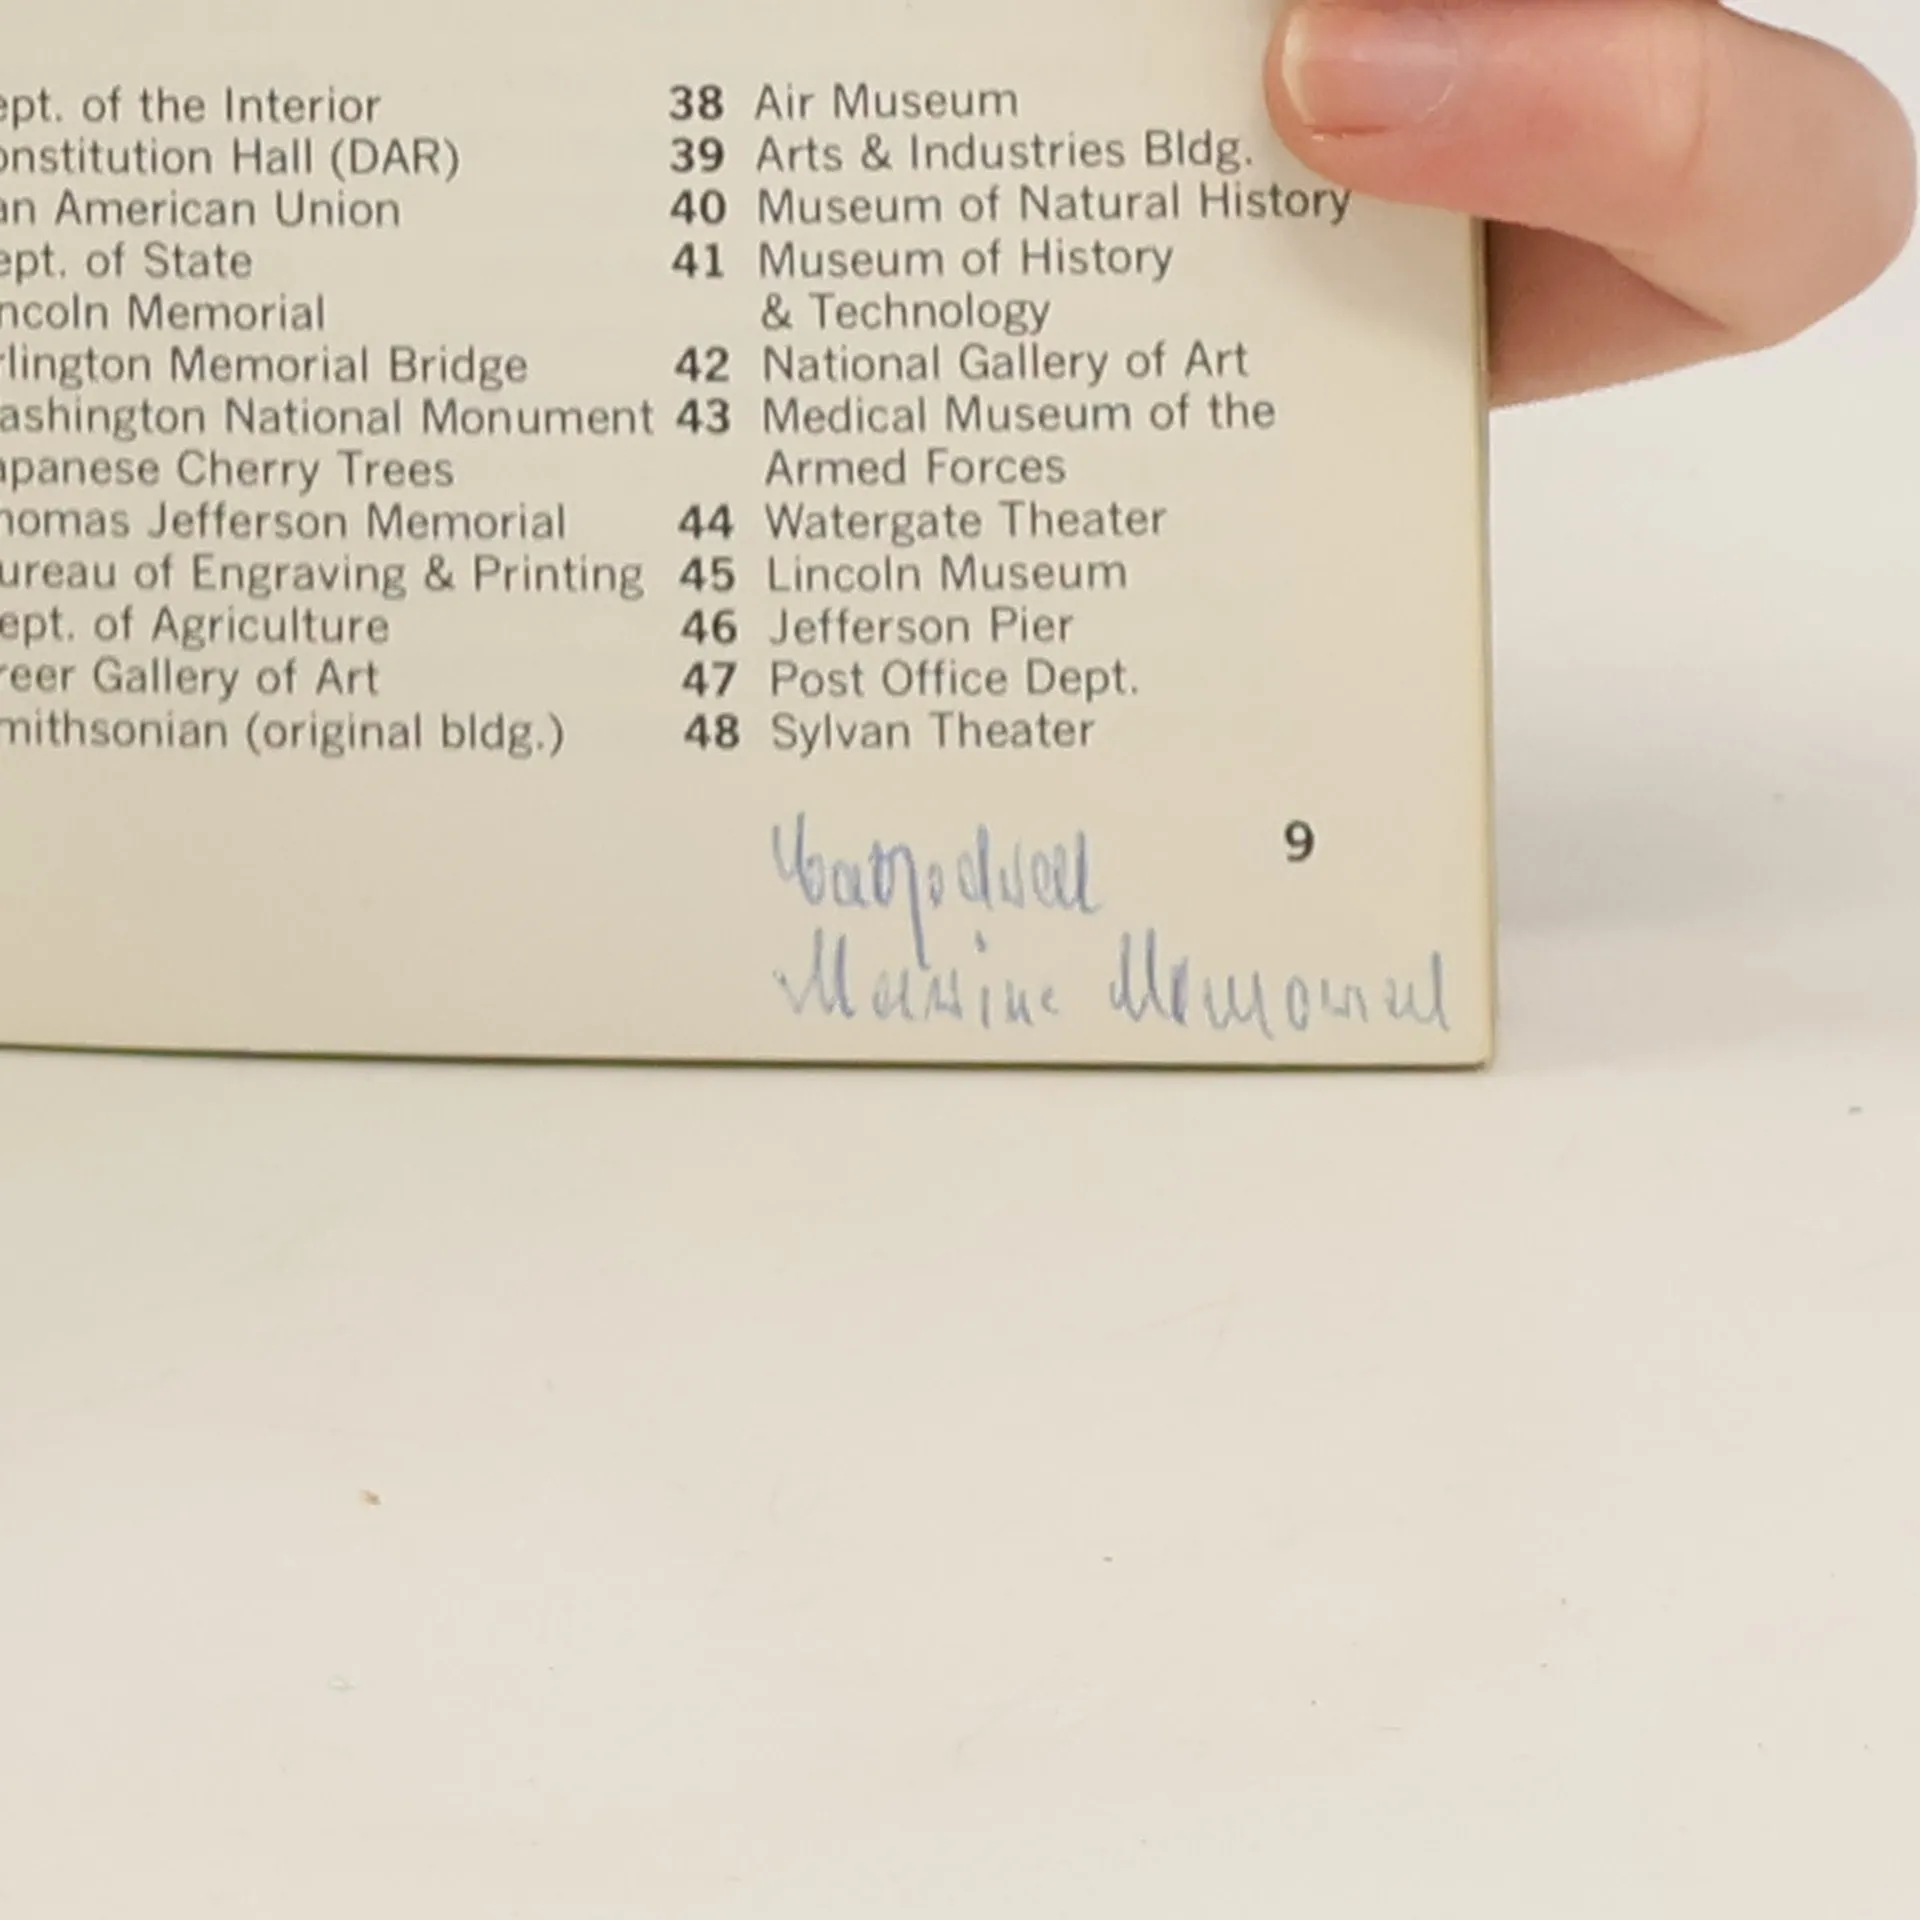 ept. of the Interior
onstitution Hall (DAR)
an American Union
ept. of State
ncoln Memorial
rlington Memorial Bridge
ashington National Monument
apanese Cherry Trees
homas Jefferson Memorial
ureau of Engraving & Printing
ept. of Agriculture
reer Gallery of Art
mithsonian (original bldg.)
38 Air Museum
39 Arts & Industries Bldg.
40 Museum of Natural History
41 Museum of History
& Technology
42 National Gallery of Art
43 Medical Museum of the
Armed Forces
44 Watergate Theater
45 Lincoln Museum
46 Jefferson Pier
47 Post Office Dept.
48 Sylvan Theater
9
Marine Memorial